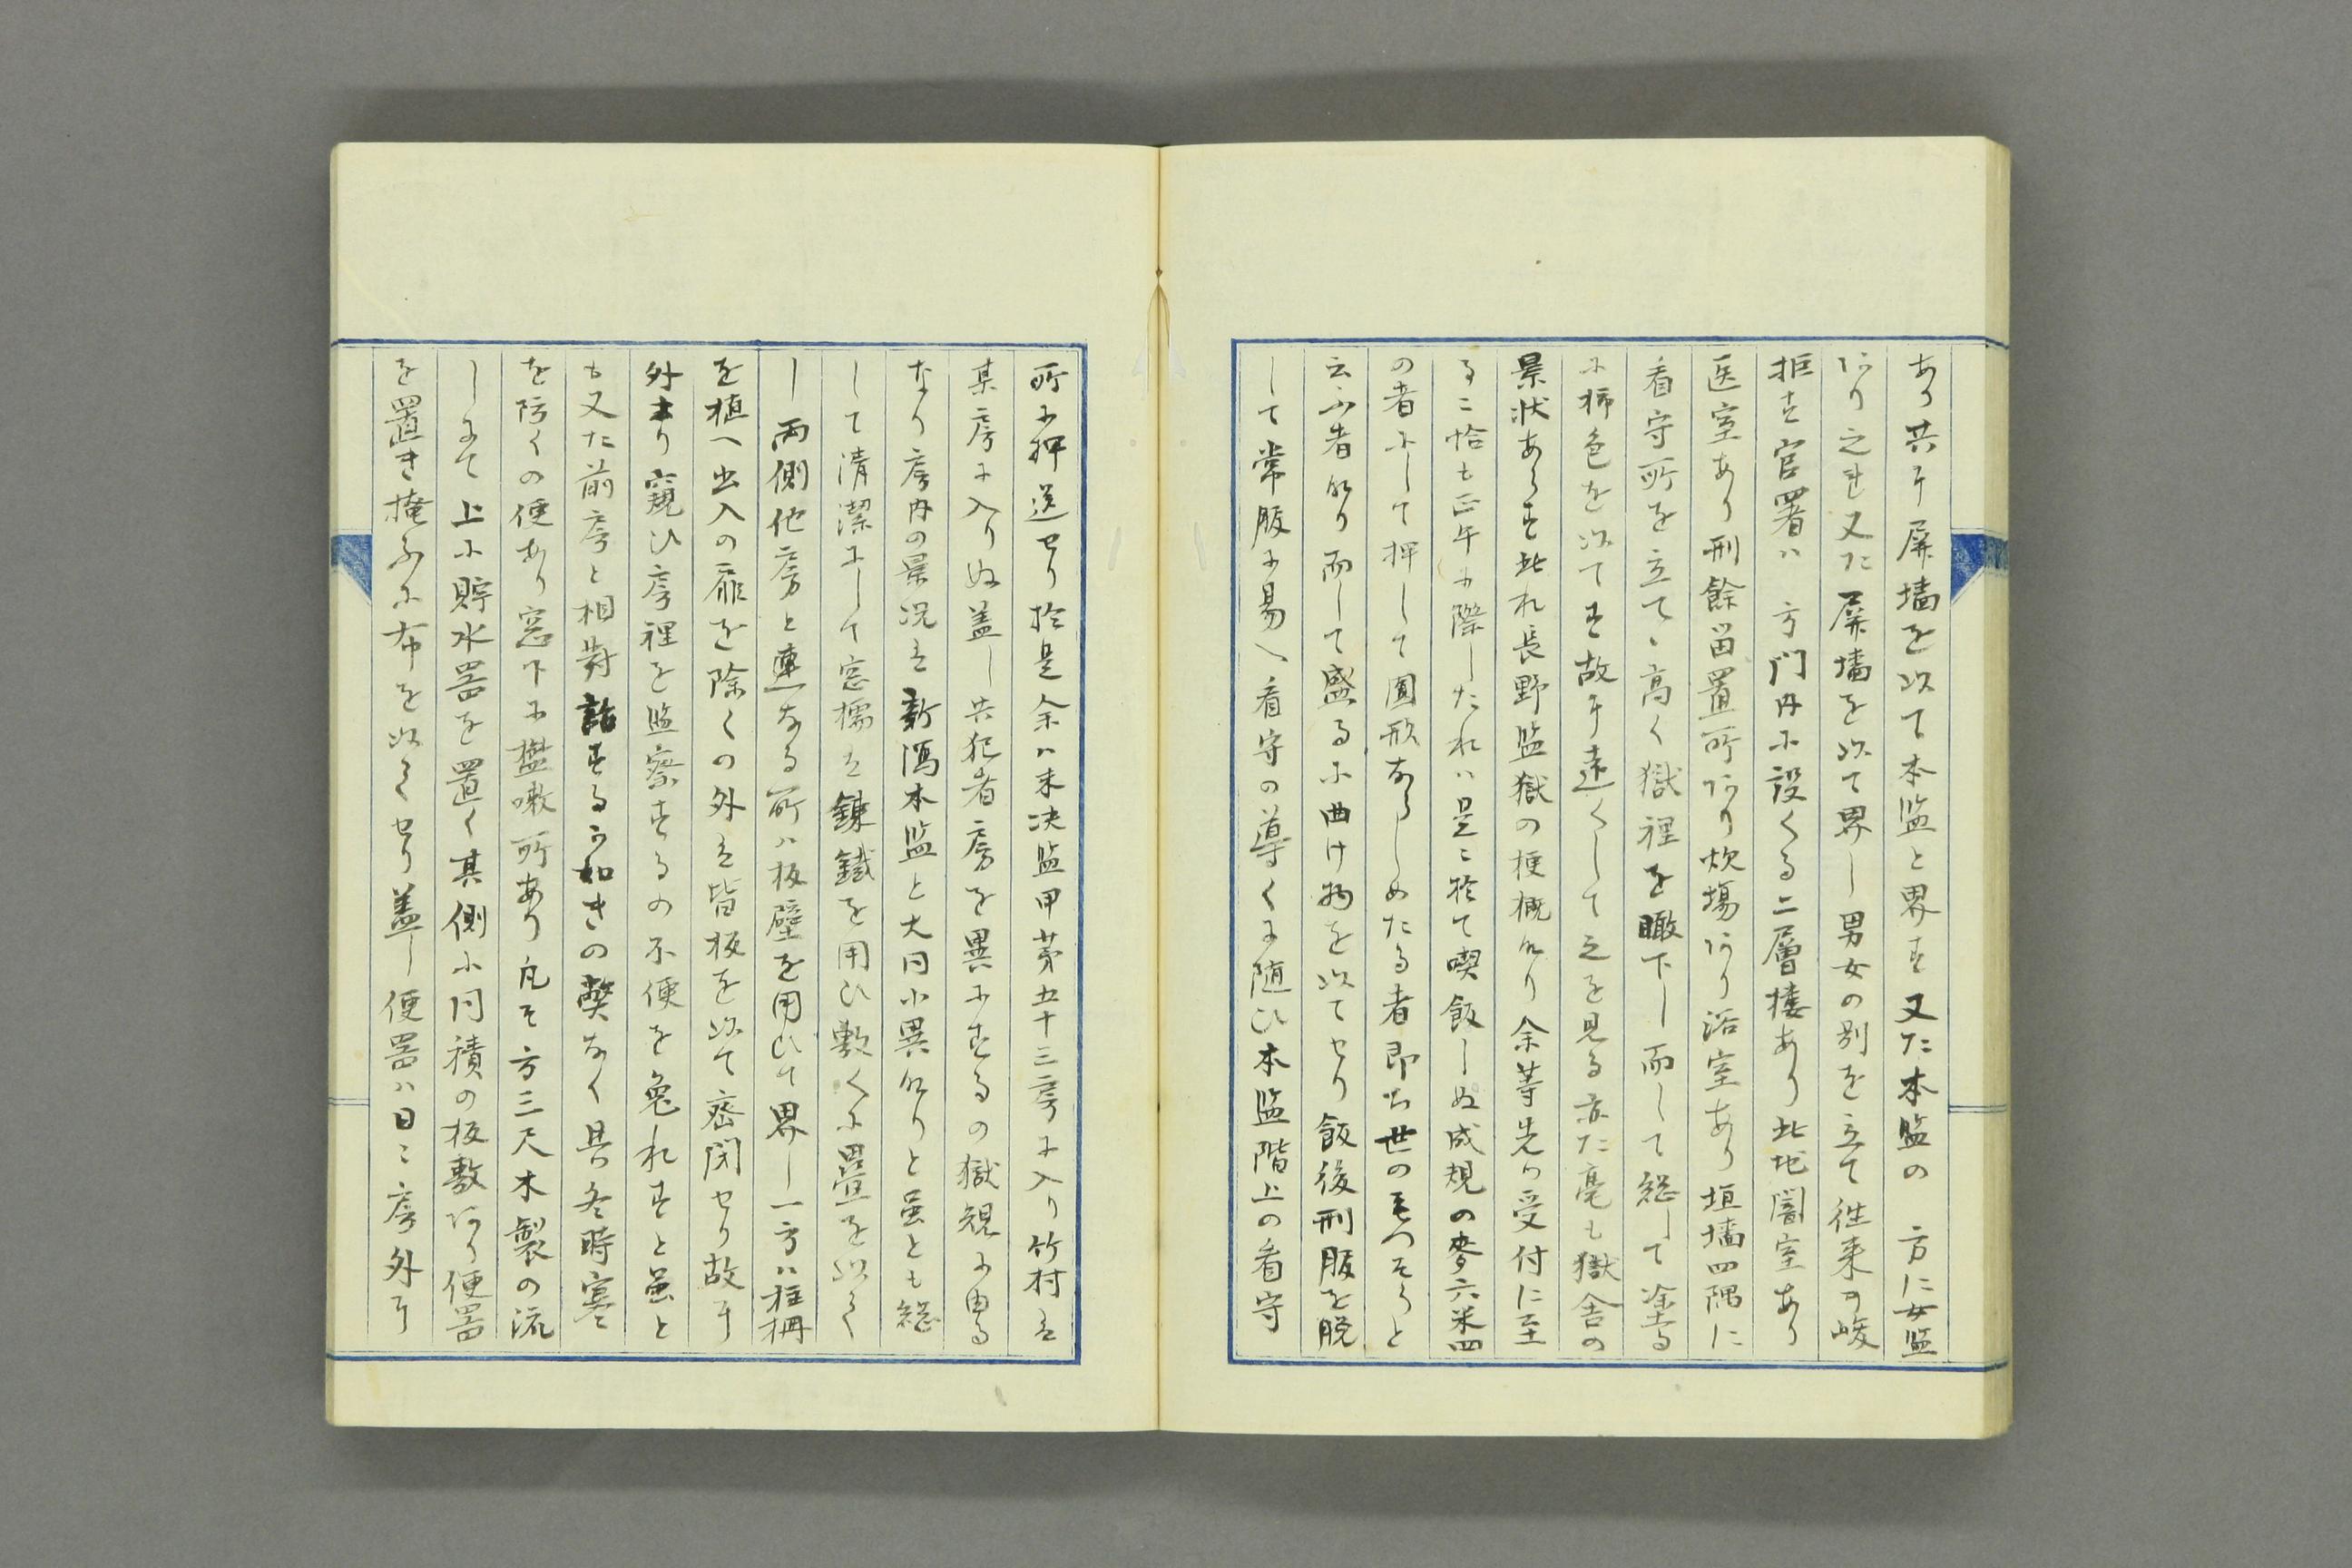 あり共に屏墻を以て本監と界す又た本監の一方に女監
あり之れ又た屏墻を以て界し男女の別を立て往来を峻
拒す官署ハ一方門内に設くる二層楼あり北地闇室あり
医室あり刑餘留置所あり炊場あり浴室あり垣墻四隅に
看守所を立て高く獄裡を瞰下し而して総して塗る
に柿色を以てす故に遠くして之を見る亦た毫も獄舎の
景状あらす此れ長野監獄の梗概なり余等先つ受付に至
る恰も正午に際したれハ是に於て喫飯しぬ成規の麥六米四
の者にして押して圓形ならしめたる者即ち世のもつそうと
云ふ者なり而して盛るに曲け物を以てせり飯後刑服を脱
して常服に易へ看守の導くに随ひ本監階上の看守
所に押送せり於是余ハ未决監甲第五十三房に入り竹村は
某房に入りぬ盖し共犯者房を異にするの獄規に由る
なり房内の景况は新潟本監と大同小異なりと虽とも総
して清潔にして窓櫺は錬鐵を用ひ敷くに疊を以てし
両側他房と連なる所ハ板壁を用ひて界し一方ハ柱柵
を植へ出入の扉を除くの外は皆板を以て密閉せり故に
外より窺ひ房裡を監察するの不便を免れすと虽と
も又た前房と相對話するか如きの弊なく且冬時寒
を防くの便あり窓下に盥嗽所あり凡そ方三尺木製の流
しにて上に貯水器を置く其側に同積の板敷あり便器
を置き掩ふに布を以てせり盖し便器ハ日々房外に